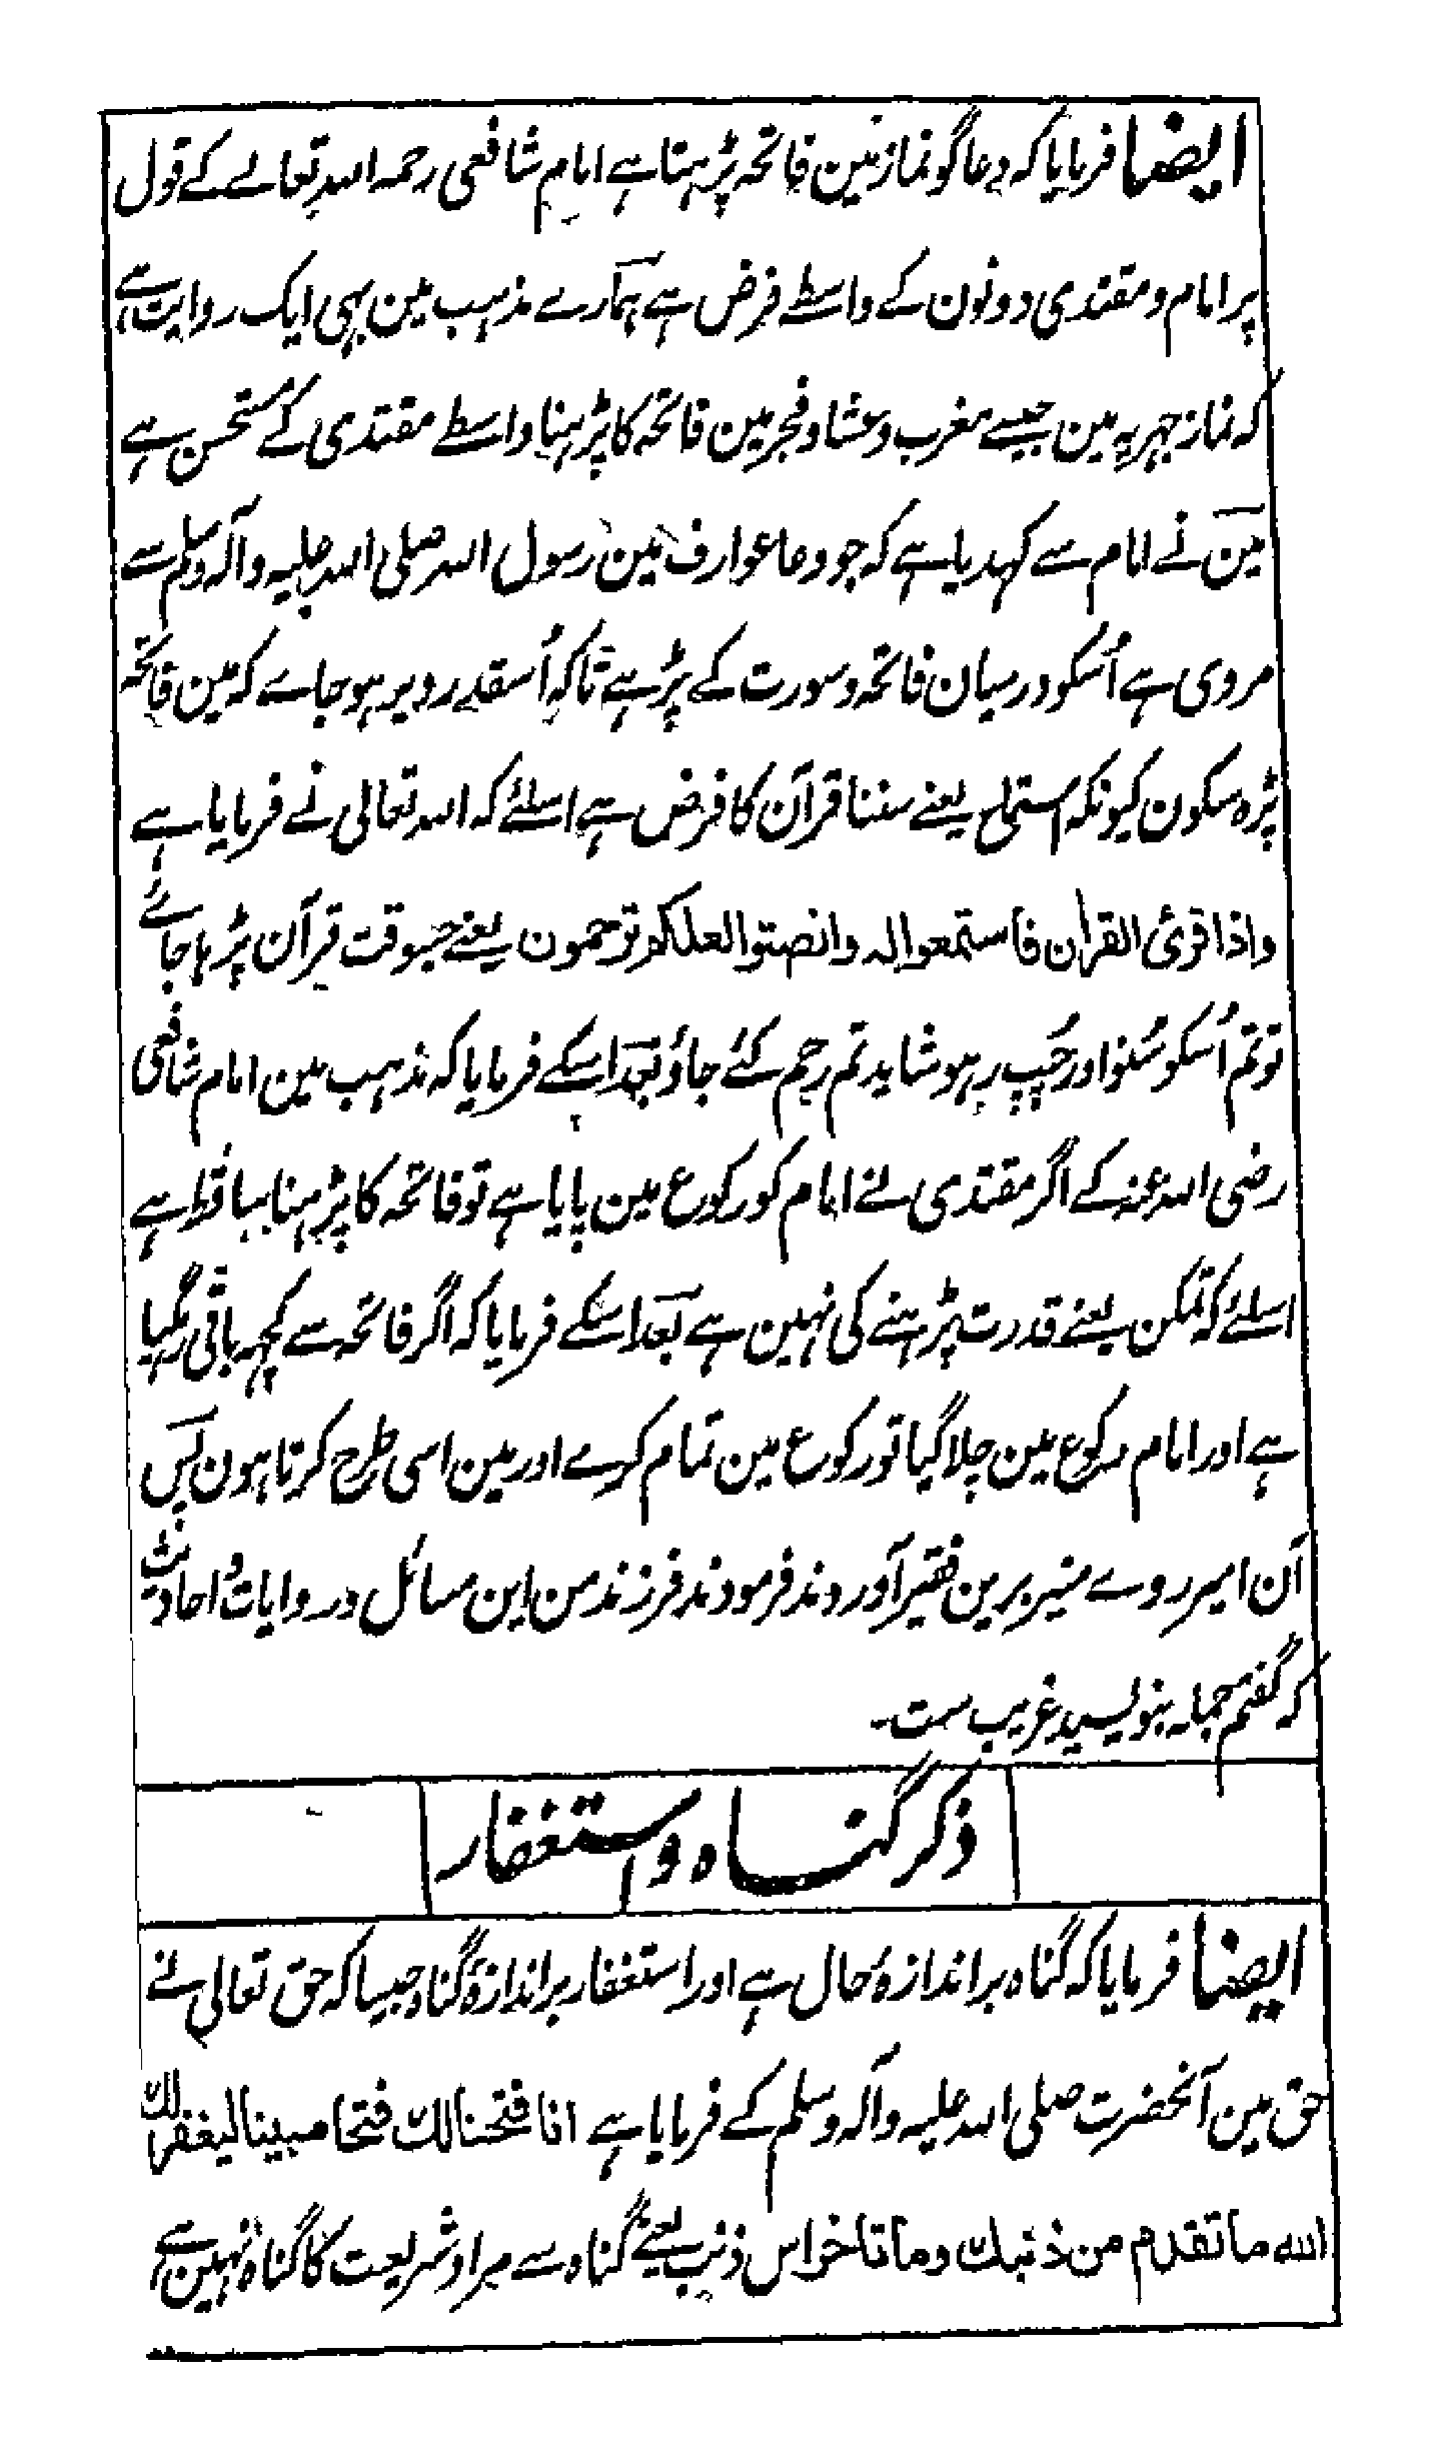 ایضا فرمایا کہ دعاگو نماز مین فاتحہ پڑہتا ہے امام شافعی رحمہ اللہ تعالے کے قول
پر امام و مقتدی دونون کے واسطے فرض ہے ہمارے مذہب مین بہی ایک روایت ہے
کہ نماز جہریہ مین جیسے مغرب و عشا و فجر مین فاتحہ کا پڑہنا واسطے مقتدی کے مستحسن ہے
مین نے امام سے کہدیا ہے کہ جو دعا عوارف مین رسول اللہ صلی اللہ علیہ وآلہ وسلم سے
مروی ہے اُسکو درمیان فاتحہ و سورت کے پڑہے تاکہ اُسقدر دیر ہو جاے کہ مین فاتحہ
پڑہ سکون کیونکہ استماع یعنے سننا قرآن کا فرض ہے اسلئے کہ اللہ تعالی نے فرمایا ہے
واذا قرئ القران فاستمعوا له وانصتوا لعلكم ترحمون یعنے جبوقت قرآن پڑہا جائے
تو تم اُسکو سُنو اور چُپ رہو شاید تم رحم کئے جاؤ بعد اسکے فرمایا کہ مذہب مین امام شافعی
رضی اللہ عنہ کے اگر مقتدی نے امام کو رکوع مین پایا ہے تو فاتحہ کا پڑہنا ساقط ہے
اسلئے کہ تمکن یعنے قدرت پڑہنے کی نہین ہے بعد اسکے فرمایا کہ اگر فاتحہ سے کچہہ باقی رہگیا
ہے اور امام رکوع مین چلا گیا تو رکوع مین تمام کرے اور مین اسی طرح کرتا ہون پس
آن امیر روے منیر برین فقیر آوردند فرمودند فرزند من این مسائل و روایات و احادیث
کہ گفتم جملہ بنویسید غریب ست۔
ذکر گناہ و استغفار
ایضا فرمایا کہ گناہ بر اندازۂ حال ہے اور استغفار بر اندازۂ گناہ جیسا کہ حق تعالی نے
حق مین آنحضرت صلی اللہ علیہ وآلہ وسلم کے فرمایا ہے انا فتحنا لك فتحا مبینا لیغفر لك
الله ما تقدم من ذنبك وما تاخر اس ذنب یعنے گناہ سے مراد شریعت کا گناہ نہین ہے